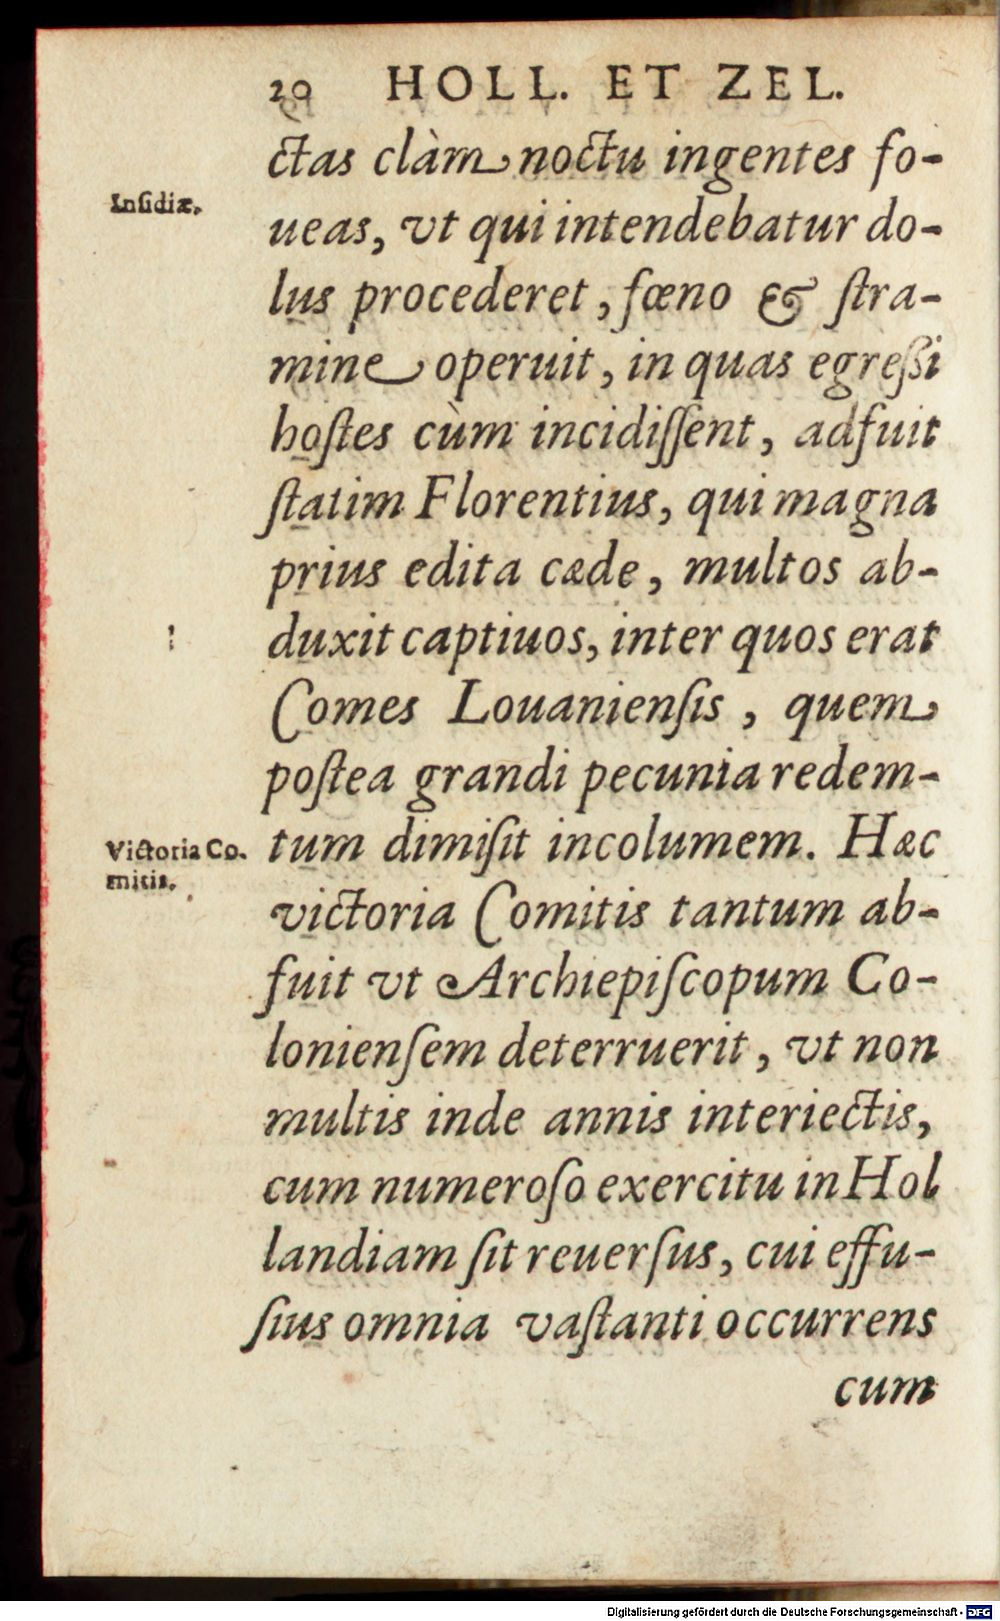 20 HOLL. ET ZEL.
ctas clàm noctu ingentes fo-
Inſidiæ.
ueas, vt qui intendebatur do-
lus procederet, fœno & ſtra-
mine operuit, in quas egreßi
hoſtes cùm incidiſſent, adfuit
ſtatim Florentius, qui magna
prius edita cæde, multos ab-
duxit captiuos, inter quos erat
Comes Louanienſis, quem
poſtea grandi pecunia redem-
Victoria Co-
mitis.
tum dimiſit incolumem. Hæc
victoria Comitis tantum ab-
fuit vt Archiepiſcopum Co-
lonienſem deterruerit, vt non
multis inde annis interiectis,
cum numeroſo exercitu in Hol
landiam ſit reuerſus, cui effu-
ſius omnia vaſtanti occurrens
cum
Digitalisierung gefördert durch die Deutsche Forschungsgemeinschaft - DFG